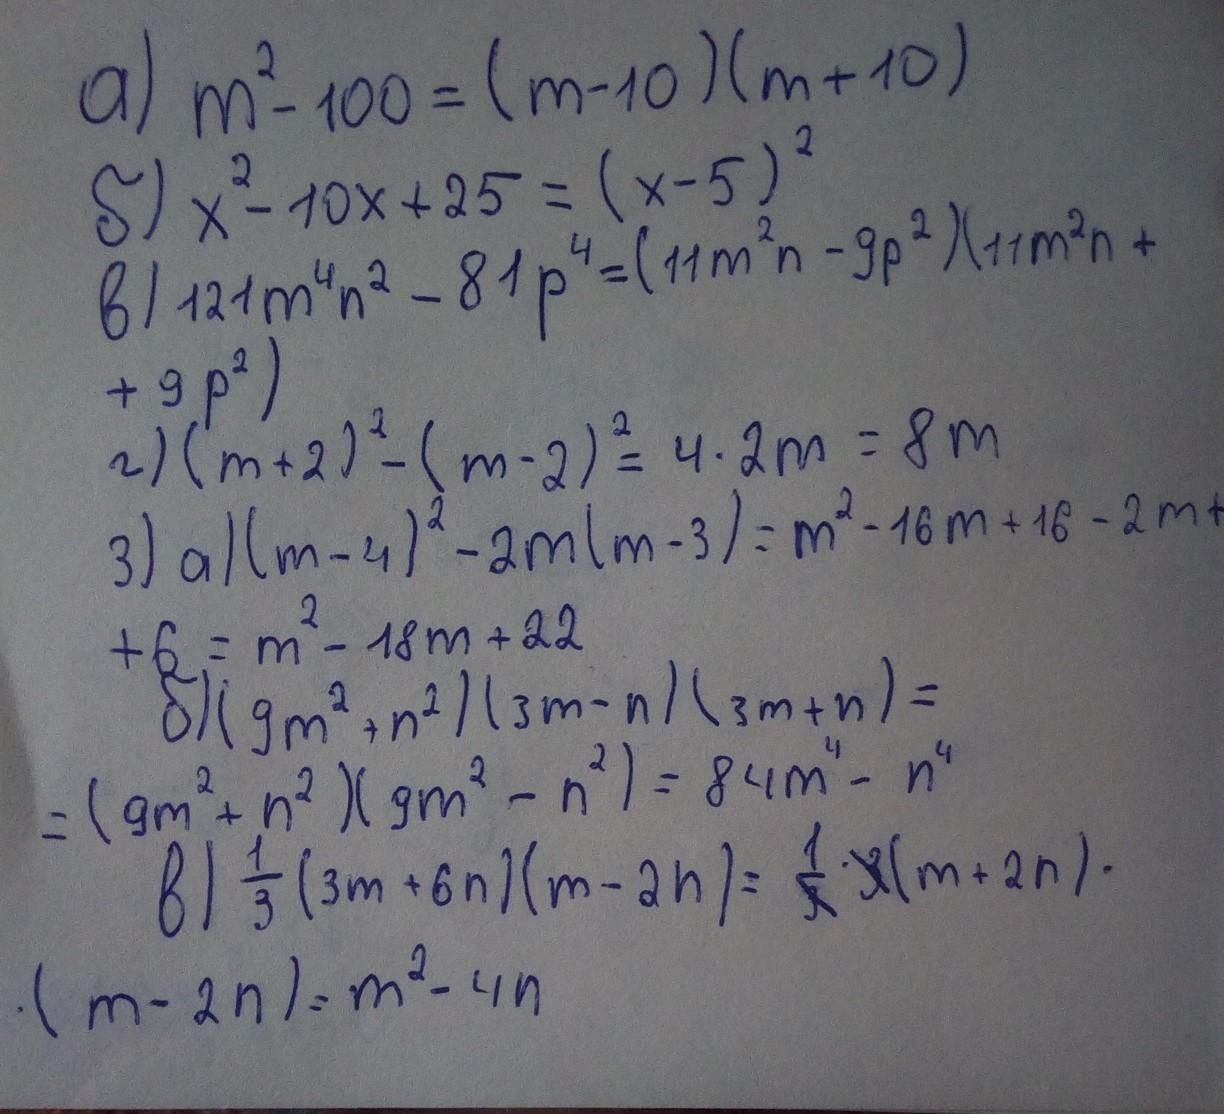 а) m² - 100 = (m-10)(m+10)
б) x² - 10x + 25 = (x-5)²
в) 121m⁴n² - 81p⁴ = (11m²n - 9p²)(11m²n +
+ 9p²)
г) (m+2)² - (m-2)² = 4·2m = 8m
3) а) (m-4)² - 2m(m-3) = m² - 16m + 16 - 2m +
+ 6 = m² - 18m + 22
б) (9m² + n²)(3m-n)(3m+n) =
= (9m² + n²)(9m² - n²) = 81m⁴ - n⁴
в) 1/3 (3m + 6n)(m - 2n) = 1/3 · 3(m + 2n) ·
· (m - 2n) = m² - 4n